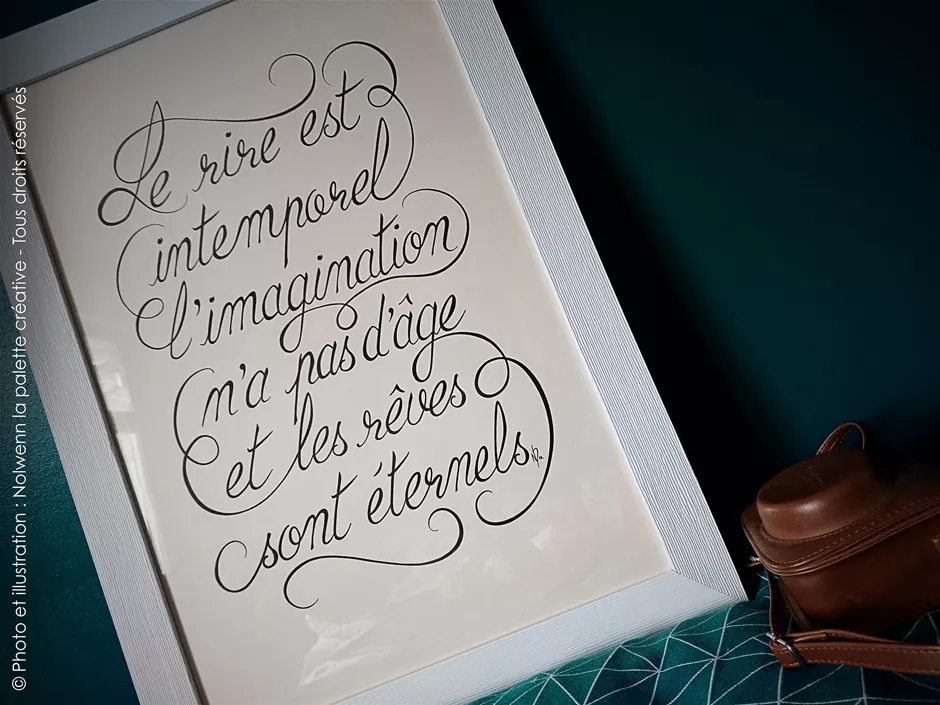 Le rire est
intemporel
l'imagination
n'a pas d'âge
et les rêves
sont éternels.
© Photo et illustration : Nolwenn la palette créative - Tous droits réservés